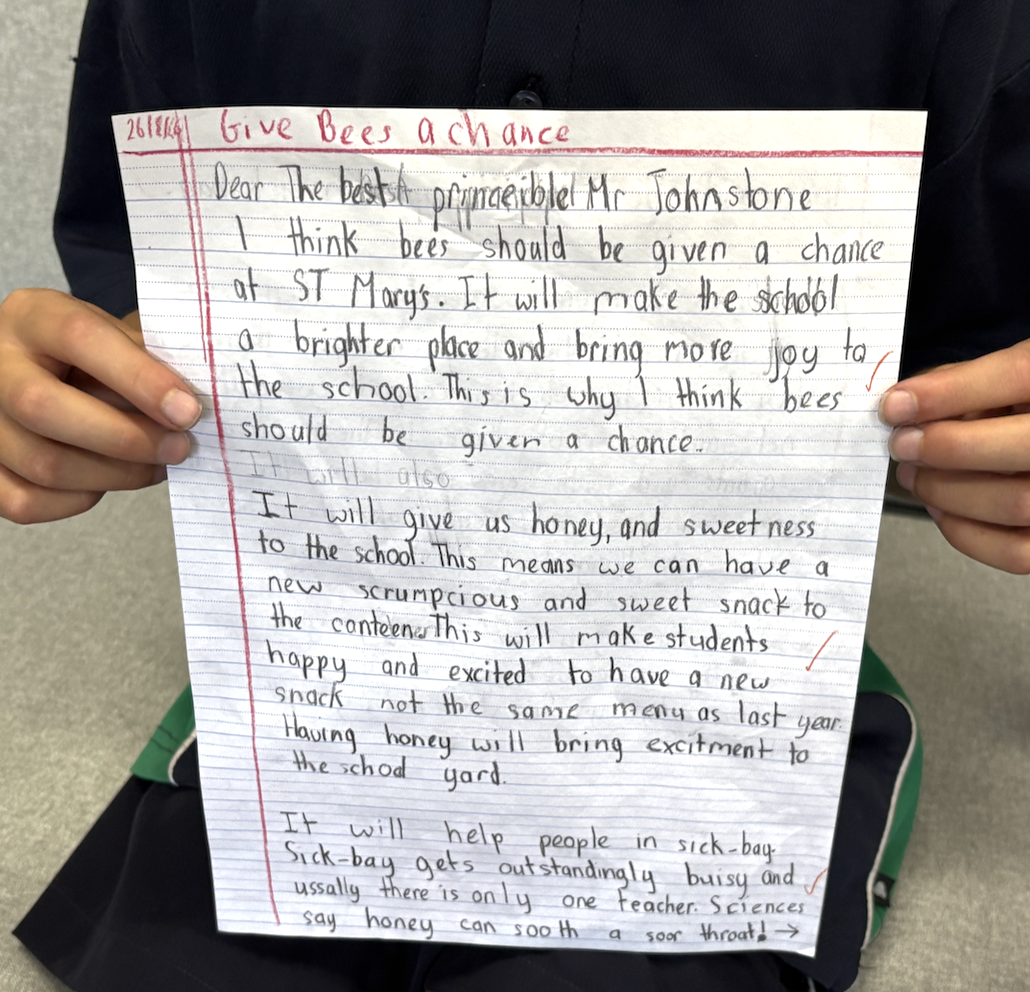 26/8/24 Give Bees a chance
Dear The best Mr Johnstone
I think bees should be given a chance
at ST Mary's. It will make the school
a brighter place and bring more joy to
the school. This is why I think bees
should be given a chance.
It will also
It will give us honey, and sweetness
to the school. This means we can have a
new scrumpcious and sweet snack to
the canteen. This will make students
happy and excited to have a new
snack not the same menu as last year.
Having honey will bring excitment to
the school yard.
It will help people in sick-bay.
Sick-bay gets outstandingly buisy and
ussally there is only one teacher. Sciences
say honey can sooth a soor throat! →